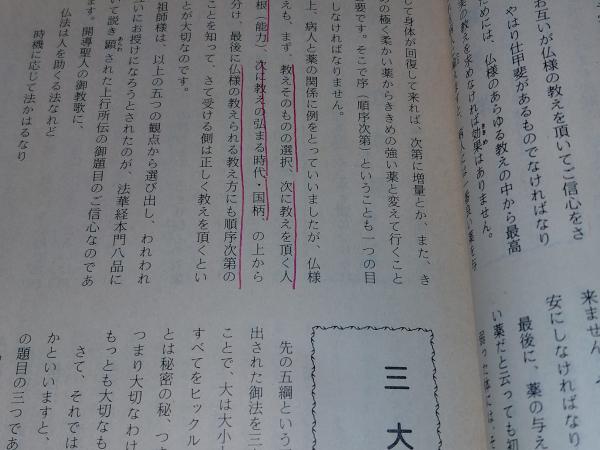 お互いが仏様の教えを頂いてご信心をさ
やはり仕甲斐があるものでなければなり
ためには、仏様のあらゆる教えの中から最高
の教えを求めなければ効果はありません。
して身体が回復して来れば、次第に増量とか、また、き
めの極く柔かい薬からききめの強い薬と変えて行くこと
要です。そこで序（順序次第）ということも一つの目
しなければなりません。
上、病人と薬の関係に例をとっていいましたが、仏様
えも、まず、教えそのものの選択、次に教えを頂く人
根（能力）、次に教えの弘まる時代・国柄、の上から
分け、最後に仏様の教えられる教え方にも順序次第の
ことを知って、さて受ける側は正しく教えを頂くとい
とが大切なのです。
祖師様は、以上の五つの観点から選び出し、われわれ
いにお授けになろうとされたのが、法華経本門八品に
いて説き顕された上行所伝の御題目のご信心なのであ
あらわ
ます。開導聖人の御教歌に、
仏法は人を助くる法なれど
時機に応じて法かはるなり
来ません。
安にしなければなり
最後に、薬の与え
い薬だと云っても初
三 大
先の五綱という
出された御法を三
ことで、大は大小
すべてをヒックル
とは秘密の秘、つ
つまり大切なわけ
もっとも大切なも
さて、それでは
かといいますと、
の題目の三つであ